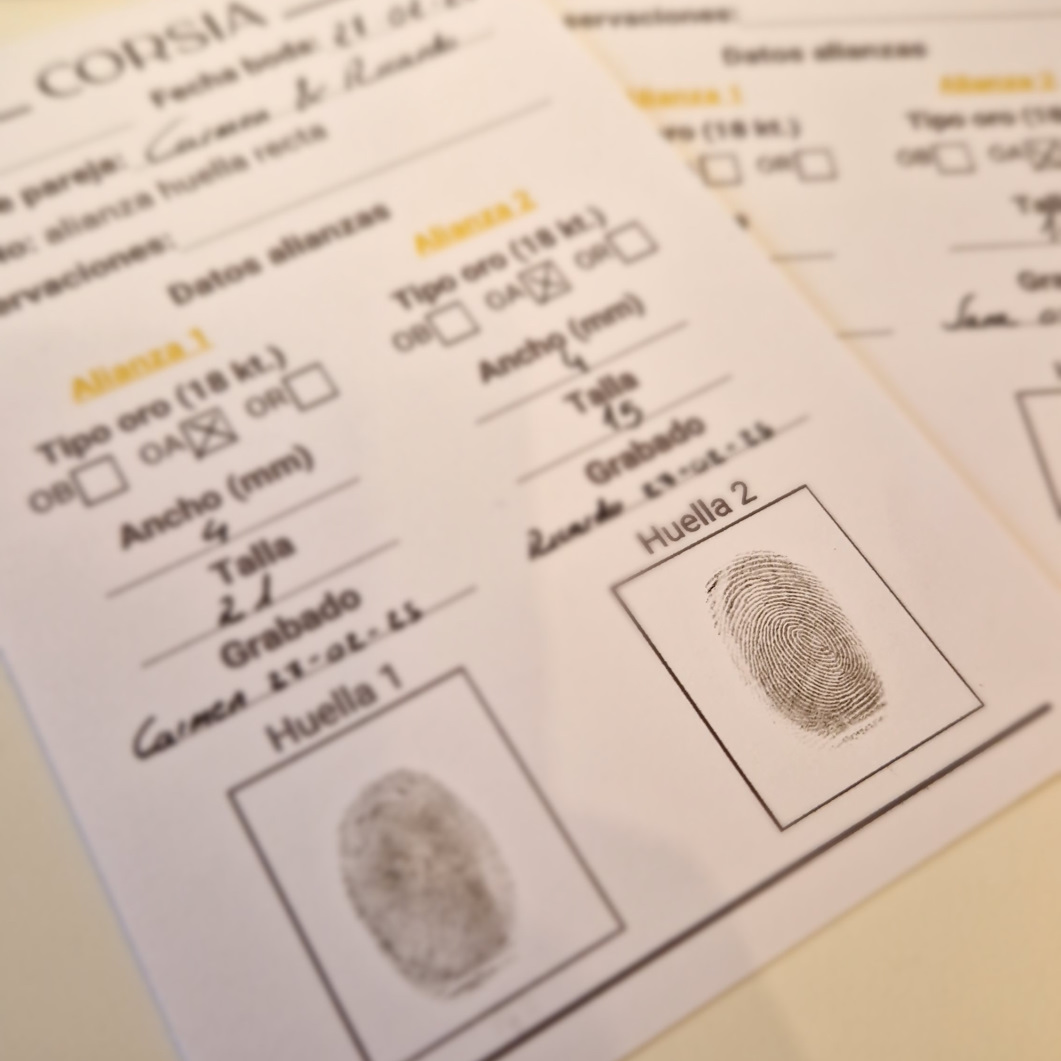 CORSIA
Fecha boda:
pareja: Carmen &
alianza huella recta
ervaciones:
Datos alianzas
Alianza 1
Tipo oro (18 kt.)
OB OA OR
Ancho (mm)
4
Talla
21
Grabado
Carmen 27-02-26
Huella 1
Alianza 2
Tipo oro (18 kt.)
OB OA OR
Ancho (mm)
4
Talla
15
Grabado
27-02-26
Huella 2
ervaciones:
Datos alianzas
lianza 1
ro (18 kt.)
OR
Alianza 2
Tipo oro (18
OB OA